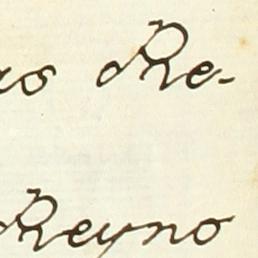 os Re-
Reyno